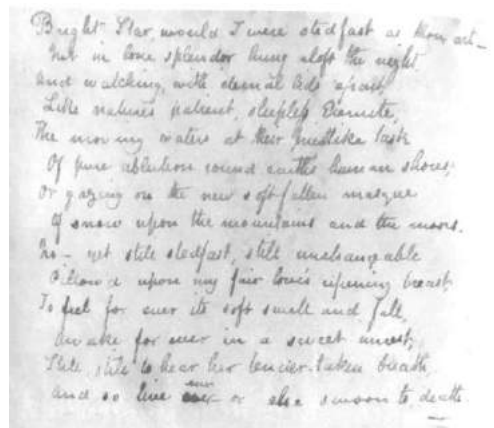 Bright Star, would I were stedfast as thou art—
Not in lone splendor hung aloft the night
And watching, with eternal lids apart,
Like natures patient, sleepless Eremite,
The moving waters at their priestlike task
Of pure ablution round earth's human shores;
Or gazing on the new soft-fallen masque
Of snow upon the mountains and the moors.
No— yet still stedfast, still unchangeable
Pillow'd upon my fair love's ripening breast,
To feel for ever its soft swell and fall,
Awake for ever in a sweet unrest;
Still, still to hear her tender-taken breath,
And so live ever— or else swoon to death